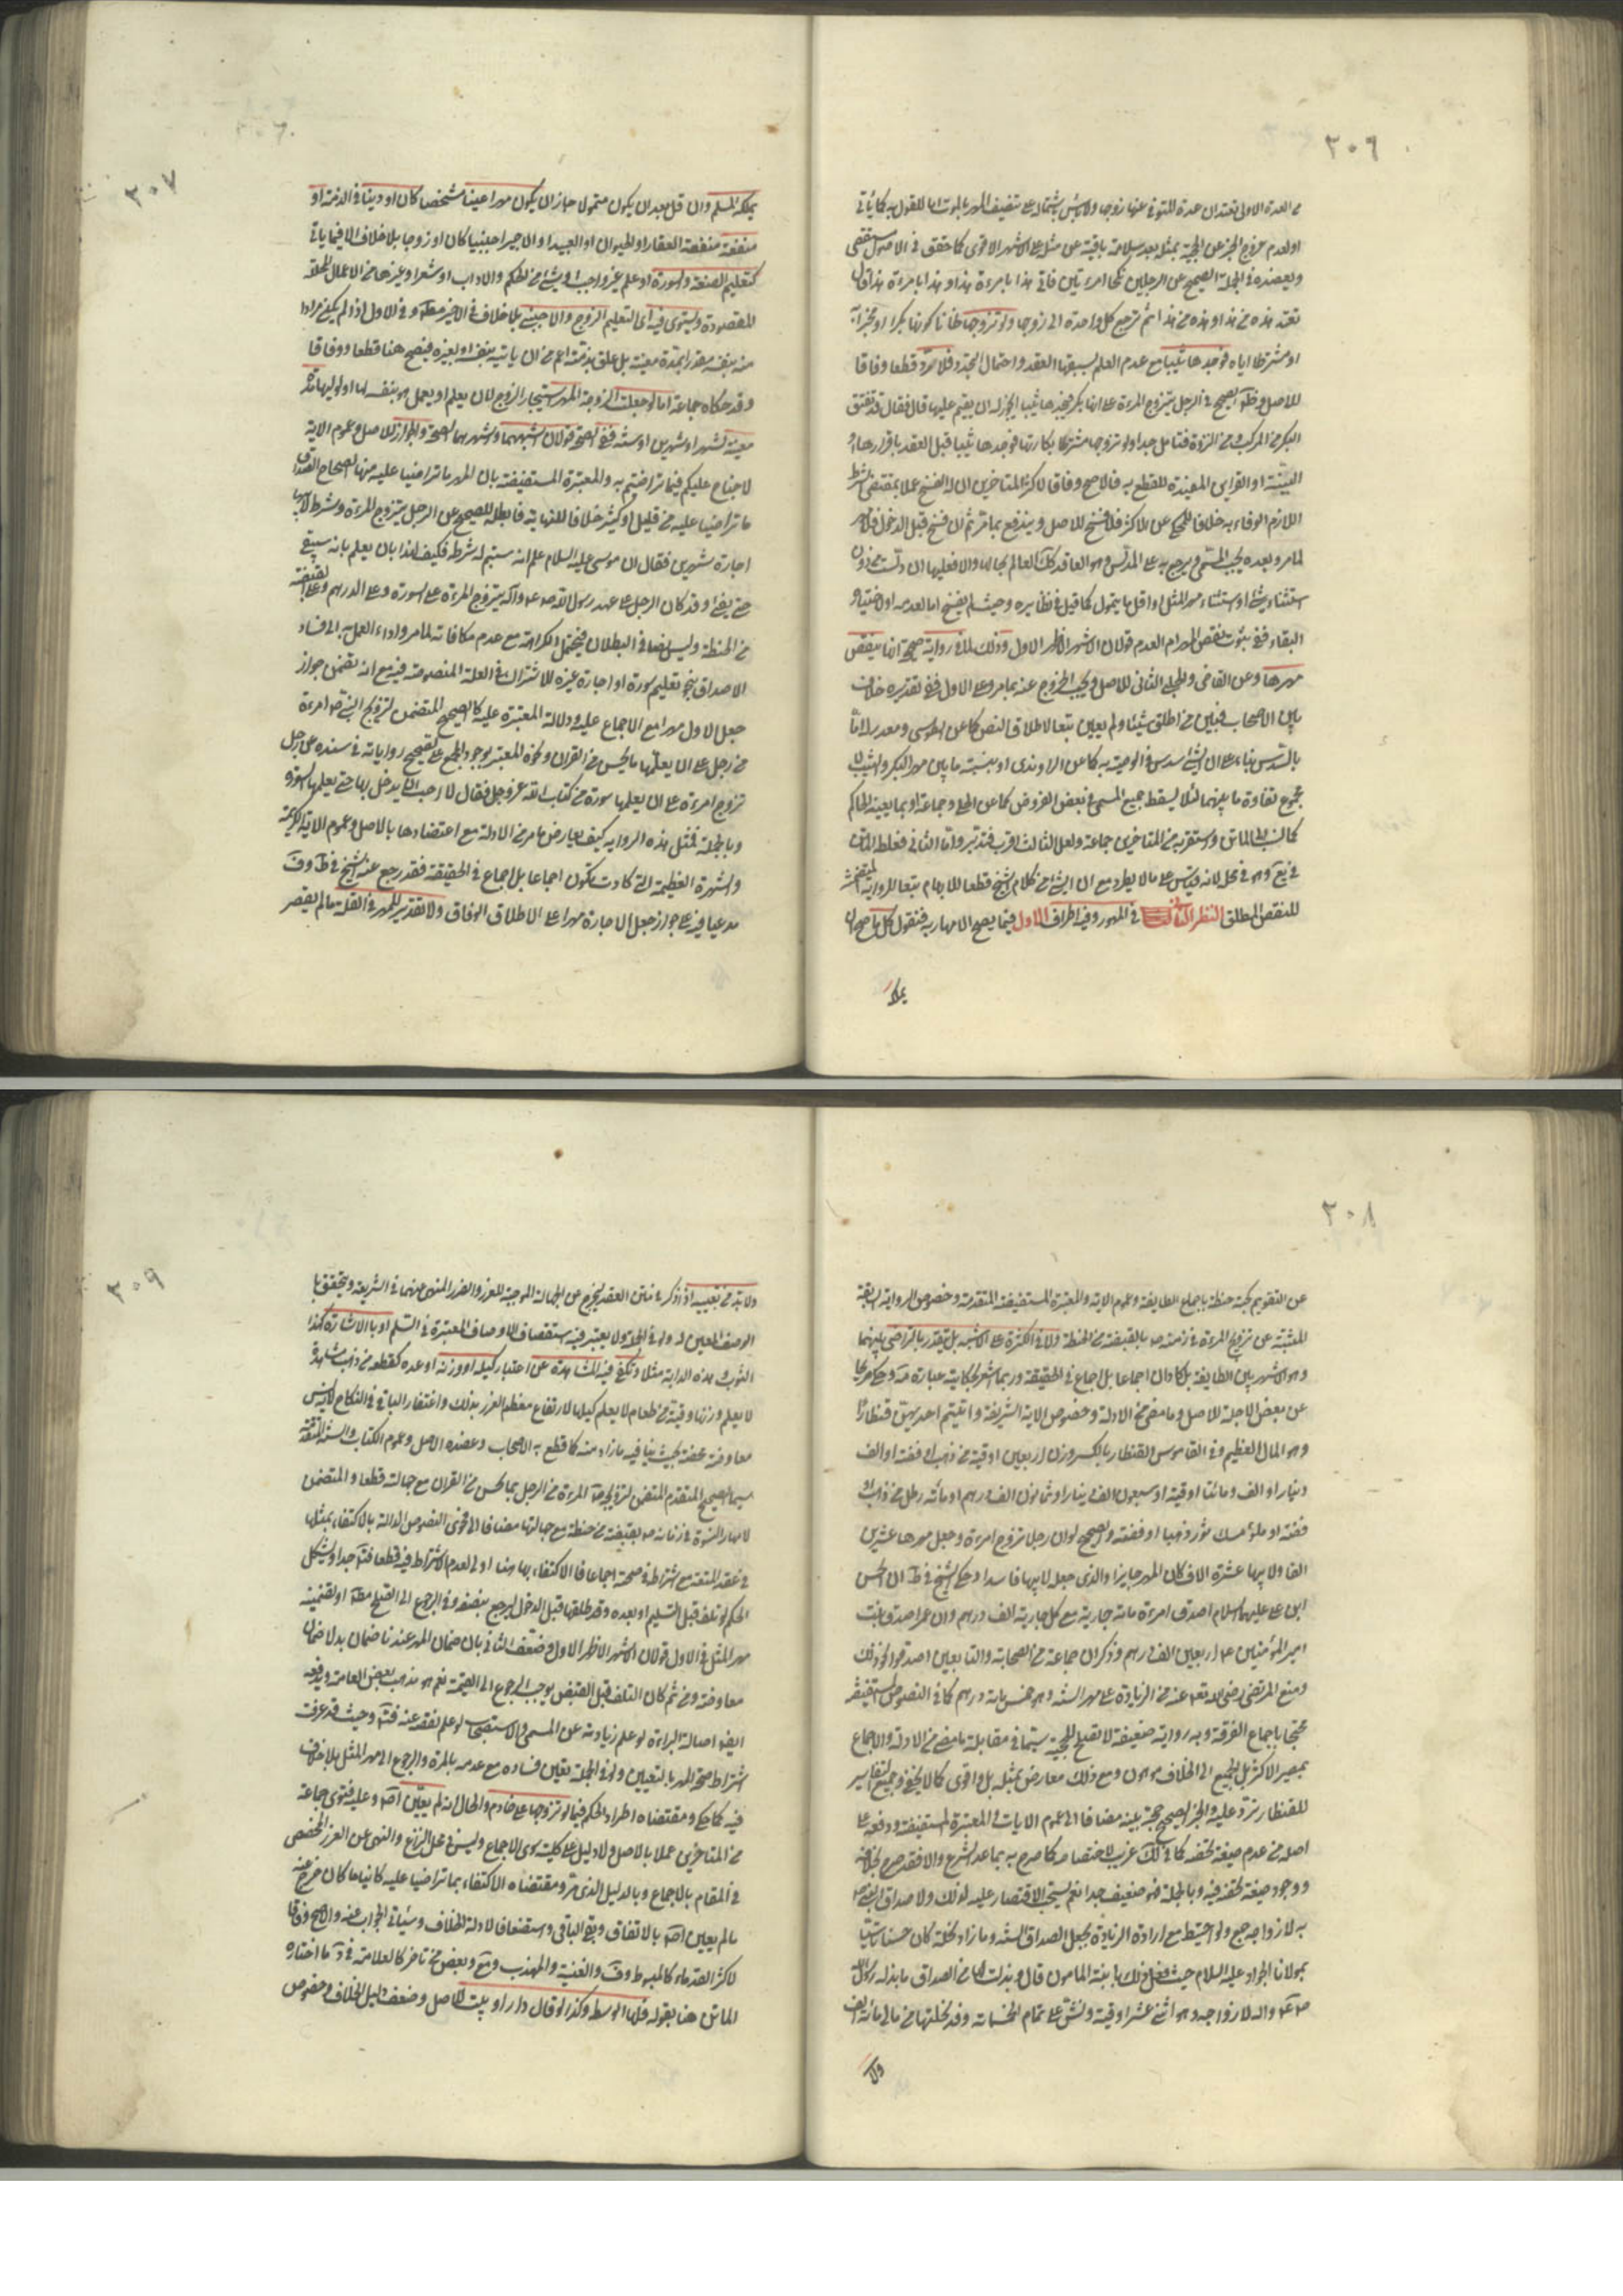 ٣٠٦
من العدة الاولى تعتدان عدة المتوفى عنها زوجها وليس باشتماله على تنصيف المهر بالموت اما للقول به كما يأتى
او لعدم خروج الخبر عن الحجية بمثله بعد سلامة باقيه عن مثله على الاشهر الاقوى كما حقق فى الاصول مستقصى
ويعضده فى الجملة الصحيح عن الرجلين نكحا امرءتين فاتى هذا بامرءة هذا وهذا بامرءة هذا قال
تعتد هذه من هذا وهذه من هذا ثم ترجع كل واحدة الى زوجها ولو تزوجها ظانا كونها بكرا او مخبرا به
او مشترطا اياه فوجدها ثيبا مع عدم العلم بسبقها العقد واحتمال التجدد فلا رد قطعا وفاقا
للاصل وظاهر الصحيح فى الرجل يتزوج المرءة على انها بكر فيجدها ثيبا ايجوز له ان يقيم عليها قال فقال قد تفتق
البكر من المركب ومن النزوة فتامل جدا ولو تزوجها مشترطا بكارتها فوجدها ثيبا قبل العقد باقرارها او
البينة او القراين المفيدة للقطع به فالاصح وفاقا لاكثر المتاخرين ان له الفسخ عملا بمقتضى الشرط
اللازم الوفاء به خلافا للمحكى عن الاكثر فلا فسخ للاصل ويندفع بما مر ثم ان فسخ قبل الدخول فلا مهر
لما مر وبعده يجب المسمى ويرجع به على المدلس وهو العاقد كك العالم بحالها والا فعليها ان دلست من دون
استثناء شئ او استثناء مهر المثل او اقل ما يتمول كما قيل فى نظايره وحيث لم يفسخ اما لعدمه او لاختياره
البقاء ففى ثبوت نقص المهر ام العدم قولان الاشهر الاظهر الاول وذلك لما فى رواية صحيحة انها ينقص
مهرها وعن القاضى والحلبى الثانى للاصل ويجب الخروج عنه بما مر وعلى الاول ففى تقديره خلاف
بين الاصحاب فبين من اطلق شيئا ولم يعين تبعا لاطلاق النص كما عن الطوسى ومقدر له اما
بالسدس بناء على ان الشئ سدس فى الوصية به كما عن الراوندى او بنسبة ما بين مهر البكر والثيب لا
مجموع تفاوة ما بينهما لئلا يسقط جميع المسمى فى بعض الفروض كما عن الحلى وجماعة او بما يعينه الحاكم
كما نسب الى الماتن واستقربه من المتاخرين جماعة ولعل الثالث اقرب فتدبر واما الثانى فغلطه الماتن
فى يع وهو فى محله لانه قياس على ما لا يطرد مع ان الشئ من كلام الشيخ قطعا للابهام تبعا للرواية المتضمنة
للنقص المطلق النظر الثانى فى المهور وفيه اطراف الاول فيما يصح الامهار به فنقول كل ما صح ان
يملكه
٣٠٧
يملكه المسلم وان قل بعد ان يكون متمولا جاز ان يكون مهرا عينا مشخصا كان او دينا فى الذمة او
منفعة منفعة العقار او الحيوان او العبيد او الاجير اجنبيا كان او زوجا بلا خلاف الا فيما ياتى
كتعليم الصنعة والسورة او علم غير واجب او شئ من الحكم والاداب او شعر او غيرها من الاعمال المحللة
المقصودة ويستوى فيه اى التعليم الزوج والاجنبى بلا خلاف فى الاخير مطلقا وفى الاول اذا لم يكن مرادا
منه بنفسه مقدرا بمدة معينة بل علق بذمته اعم من ان ياتيه بنفسه او بغيره فيصح هنا قطعا ووفاقا
وقد حكاه جماعة اما لو جعلت الزوجة المهر استيجار الزوج لان يعلم او يعمل هو بنفسه لها او لوليها مدة
معينة لشهر او شهرين او سنة ففى الصحة قولان اشبههما واشهرهما الصحة والجواز للاصل وعموم الاية
لا جناح عليكم فيما تراضيتم به والمعتبرة المستفيضة بان المهر ما تراضيا عليه منها الصحاح الصداق
ما تراضيا عليه من قليل او كثير خلافا للنهاية فابطله للصحيح عن الرجل يتزوج المرءة ويشترط لابيها
اجارة شهرين فقال ان موسى عليه السلام علم انه سيتم له شرطه فكيف لهذا بان يعلم بانه سيبقى
حتى يفى وقد كان الرجل على عهد رسول الله صلى الله عليه وآله يتزوج المرءة على السورة وعلى الدرهم وعلى القبضة
من الحنطة وليس نصا فى البطلان فيحتمل الكراهة مع عدم مكافاته لما مر واداء العمل به الى فساد
الاصداق بنحو تعليم سورة او اجارة غيره للاشتراك فى العلة المنصوصة فيه مع انه تضمن جواز
جعل الاول مهرا مع الاجماع عليه ودلالة المعتبرة عليه كالصحيح المتضمن لتزويج النبى ص امرءة
من رجل على ان يعلمها ما يحسن من القران ونحوه المعتبر بوجود المجمع على تصحيح رواياته فى سنده عن رجل
تزوج امرءة على ان يعلمها سورة من كتاب الله عز وجل فقال لا احب ان يدخل بها حتى يعلمها السورة
وبالجملة فمثل هذه الرواية كيف يعارض ما مر من الادلة مع اعتضادها بالاصل وعموم الاية الكريمة
والشهرة العظيمة التى كادت يكون اجماعا بل اجماع فى الحقيقة فقد رجع عنه الشيخ فى ط وف
مدعيا فيه على جواز جعل الاجارة مهرا على الاطلاق الوفاق ولا تقدير للمهر فى القلة ما لم يقصر
٣٠٨
عن التقويم كحبة حنطة باجماع الطايفة وعموم الاية والمعتبرة المستفيضة المتقدمة وخصوص الرواية السابقة
المثبتة عن تزويج المرءة فى زمنه ص بالقبضة من الحنطة ولا فى الكثرة على الاشبه بل يتقدر بالتراضى بينهما
وهو الاشهر بين الطايفة بل كاد ان اجماعا بل اجماع فى الحقيقة وربما اشعر بحكايته عبارة وحكى صريحا
عن بعض الاجلة للاصل وما مضى من الادلة وخصوص الاية الشريفة واتيتم احديهن قنطارا
وهو المال العظيم وفى القاموس القنطار بالكسر وزن اربعين اوقية من ذهب او فضة او الف
دينار او الف ومائتا اوقية او سبعون الف دينار او ثمانون الف درهم او مائة رطل من ذهب او
فضة او ملؤ مسك ثور ذهبا او فضة والصحيح لو ان رجلا تزوج امرءة وجعل مهرها عشرين
الفا ولابيها عشرة الاف كان المهر جايزا والذى جعل لابيها فاسدا وحكى الشيخ فى ط ان الحسن
ابن على عليهما السلام اصدق امرءة مائة جارية مع كل جارية الف درهم وان عمر اصدق بنت
امير المؤمنين ع اربعين الف درهم وذكر ان جماعة من الصحابة والتابعين اصدقوا نحو ذلك
ومنع المرتضى رضى الله تعالى عنه من الزيادة على مهر السنة وهو خمس مائة درهم كما فى النصوص المستفيضة
محتجا باجماع الفرقة وبه رواية ضعيفة لا تصلح للحجية سيما فى مقابلة ما مضى من الادلة والاجماع
بمصير الاكثر بل الجميع الى الخلاف موهون ومع ذلك معارض بمثله بل واقوى كما لا يخفى وجميع التفاسير
للقنطار ترد عليه والخبر الصحيح حجة بينة مضافا الى عموم الايات والمعتبرة المستفيضة ودفعه على
اصله من عدم صيغة تخصه كما فى لك غريب لاختصاصه كما صرح به بما عدا الشرع والا فقد صرح بخلافه
ووجود صيغة تخصه فيه وبالجملة فهو ضعيف جدا نعم يستحب الاقتصار عليه لذلك ولاصداق النبى ص
به لازواجه جمع ولو احتيط مع ارادة الزيادة بجعل الصداق السنة وما زاد نحلة كان حسنا تأسيا
بمولانا الجواد عليه السلام حيث فعل ذلك بابنة المامون قال وبذلت لها من الصداق ما بذله رسول الله
ص واله لازواجه وهو اثنى عشر اوقية ونش على تمام الخمسمائة وقد نحلتها من مالى مائة الف
ولا
٣٠٩
ولا بد من تعيينه اذا ذكر فى متن العقد ليخرج عن الجهالة الموجبة للغرر والضرر المنهى عنهما فى الشريعة ويتحقق با
الوصف المعين له ولو فى الجملة ولا يعتبر فيه استقصاف الاوصاف المعتبرة فى السلم او بالاشارة كهذا
الثوب وهذه الدابة مثلا وتكفى فيه المشاهدة عن اعتبار كيله او وزنه او عده كقطعة من ذهب مشاهدة
لا يعلم وزنها وقبة من طعام لا يعلم كيلها لارتفاع معظم الغرر بذلك واغتفار الباقى فى النكاح لانه ليس
معاوضة محضة بحيث ينافيه ما زاد منه كما قطع به الاصحاب وعضده الاصل وعموم الكتاب والسنة المتقدمة
سيما الصحيح المتقدم المتضمن لتزويجه ص المرءة من الرجل بما يحسن من القران مع جهالته قطعا والمتضمن
لامهار النسوة فى زمانه ص بقبضة من حنطة مع جهالتها مضافا الى فحوى النصوص الدالة بالاكتفاء بمثلها
فى عقد المتعة مع اشتراطه فى صحته اجماعا فالاكتفاء بها هنا اولى لعدم الاشتراط فيه قطعا فتامل جدا ويشكل
الحكم لو تلف قبل التسليم او بعده وقد طلقها قبل الدخول ليرجع بنصفه وفى الرجوع الى الصلح مطلقا او تضمينه
مهر المثل فى الاول قولان الاشهر الاظهر الاول وضعف الثانى بان ضمان المهر عندنا ضمان يد لا ضمان
معاوضة ومن ثم كان التلف قبل القبض يوجب الرجوع الى القيمة نعم هو مذهب بعض العامة ويدفعه
ايضا اصالة البراءة لو علم زيادته عن المسمى والاستصحاب لو علم نقصه عنه فتامل وحيث قد عرفت
اشتراط صحة المهر بالتعيين ولو فى الجملة تعين فساده مع عدمه بالمرة والرجوع الى مهر المثل بلا خلاف
فيه كما حكى ومقتضاه اطراد الحكم فيما لو تزوجها على خادم والحال انه لم يعين اصلا وعليه فتوى جماعة
من المتاخرين عملا بالاصل ولا دليل على كليته سوى الاجماع وليس فى محل النزاع والنهى عن الغرر المخصص
فى المقام بالاجماع وبالدليل الذى مر ومقتضاه الاكتفاء بما تراضيا عليه كائنا ما كان خرج منه
ما لم يعين اصلا بالاتفاق وبقى الباقى واستضعافا لادلة الخلاف وسياتى الجواب عنه والاصح وفاقا
لاكثر القدماء كالمبسوط وف والغنية والمهذب ويع وبعض من تاخر كالعلامة فى د ما اختاره
الماتن هنا بقوله فلها الوسط وكذا لو قال دار او بيت للاصل وضعف دليل الخلاف وخصوص